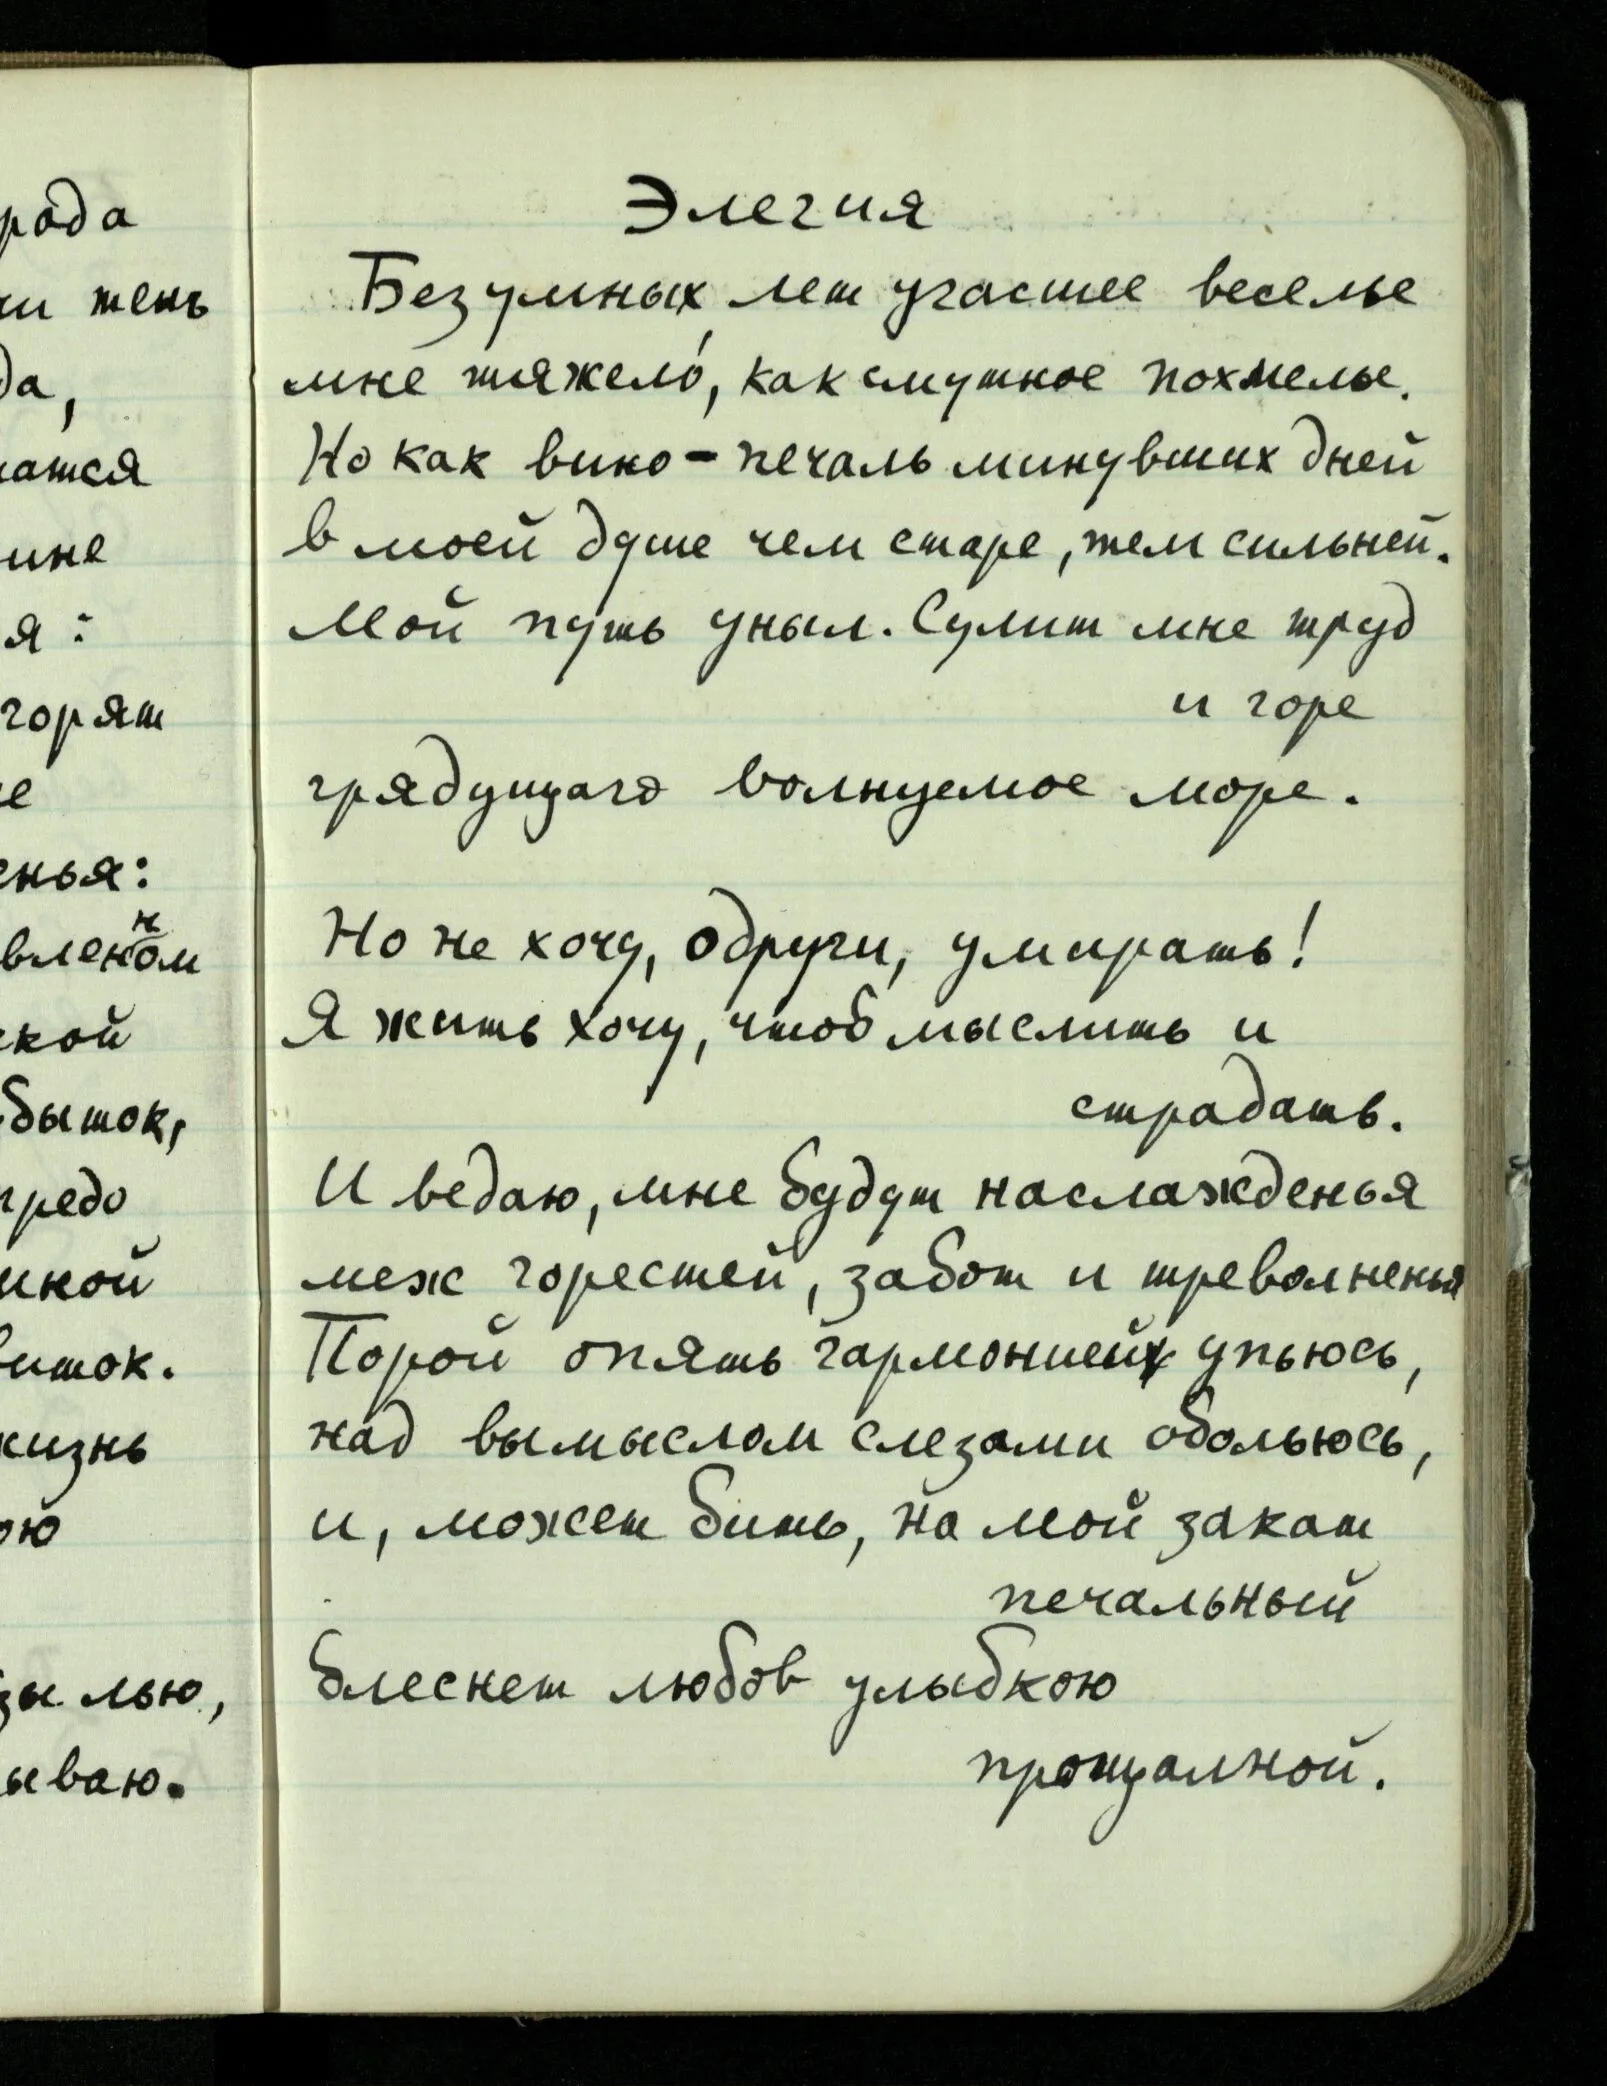 рода
ни тень
да,
чатся
ине
я:
горят
е
енья:
н
вленом
ской
быток,
предо
иной
виток.
жизнь
ою
зы лью,
ываю.
Элегия
Безумных лет угасшее веселье
мне тяжело́, как смутное похмелье.
Но как вино – печаль минувших дней
в моей душе чем старе, тем сильней.
Мой путь уныл. Сулит мне труд
и горе
грядущаго волнуемое море.
Но не хочу, о други, умирать!
Я жить хочу, чтоб мыслить и
страдать.
И ведаю, мне будут наслажденья
меж горестей, забот и треволненья
Порой опять гармонией упьюсь,
над вымыслом слезами обольюсь,
и, может бить, на мой закат
печальный
блеснет любов улыбкою
прощалной.